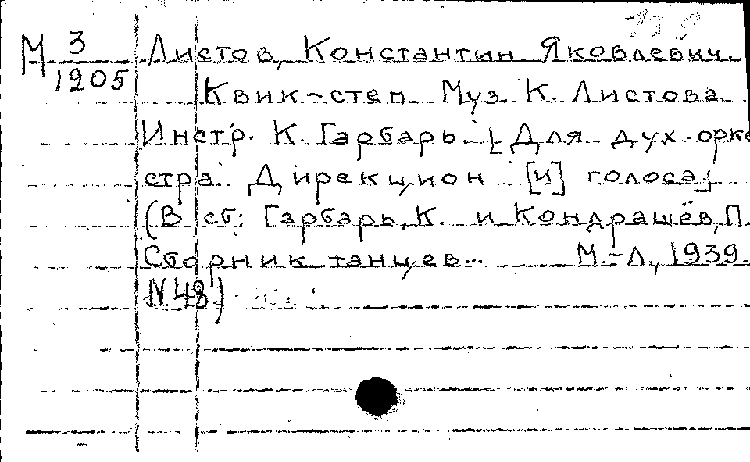 М 3/1905 Листов, Константин Яковлевич.
Квик-степ. Муз. К. Листова
Инстр. К. Гарбарь. [Для дух. орке
стра. Дирекцион [и] голоса]
(В сб: Гарбарь, К. и Кондрашев, П.
Сборник танцев... М.-Л., 1939.
N 48)